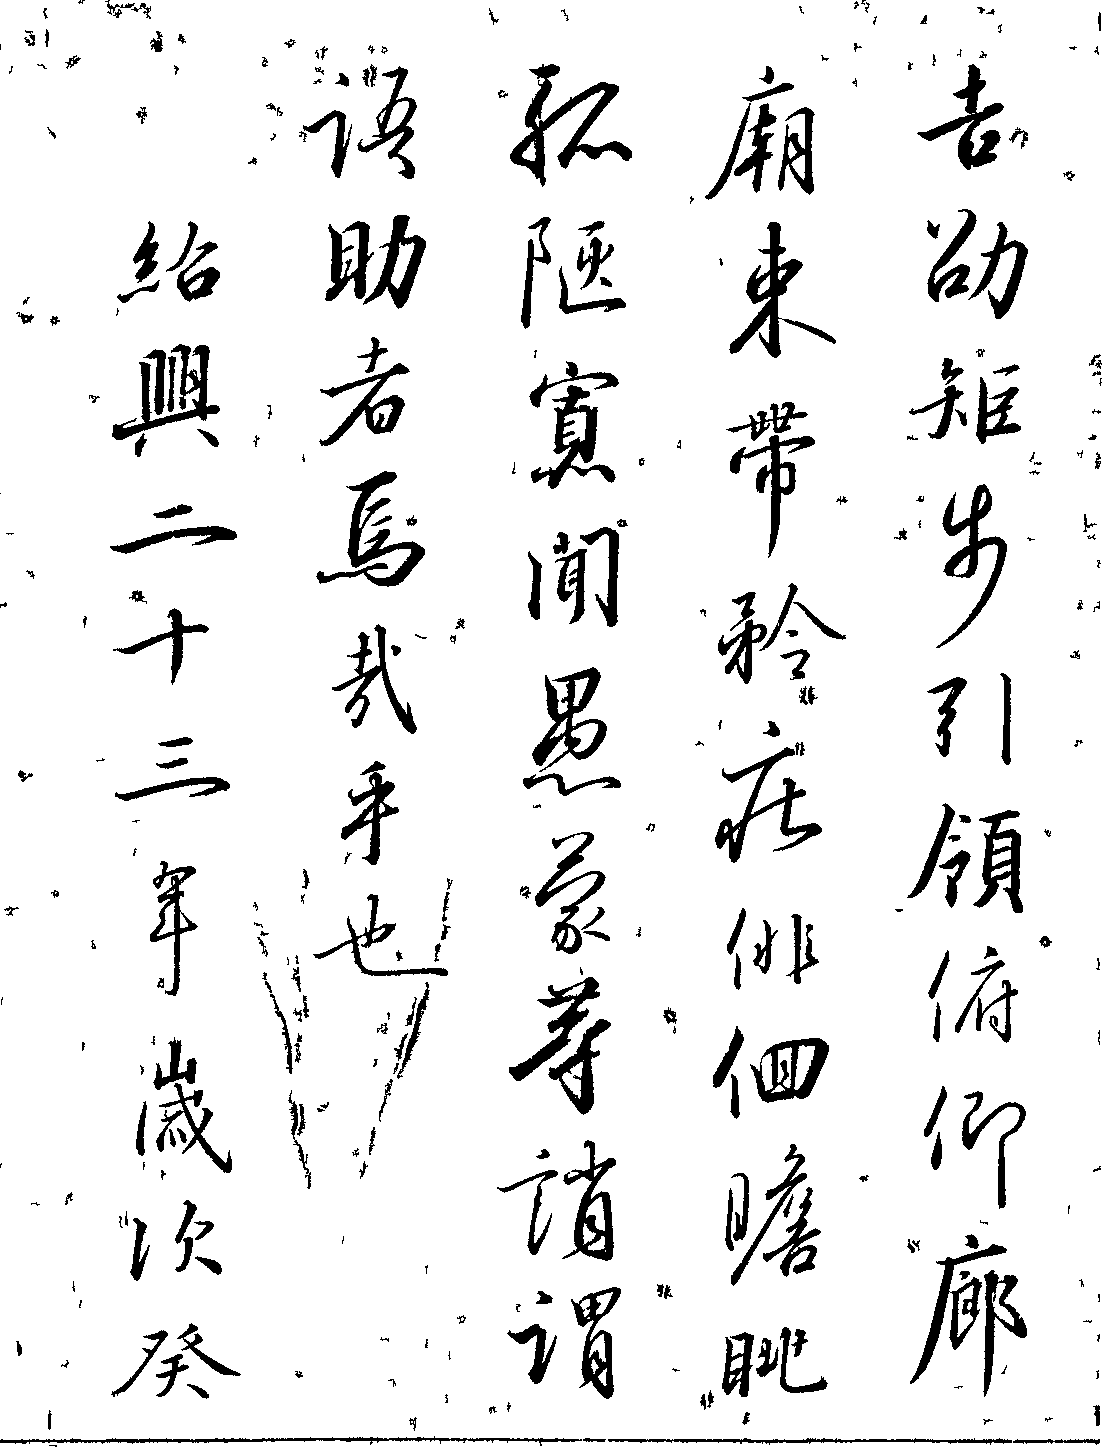 吉劭矩步引領俯仰廊
廟束帶矜莊徘徊瞻眺
孤陋寡聞愚蒙等誚謂
語助者焉哉乎也
紹興二十三年歲次癸